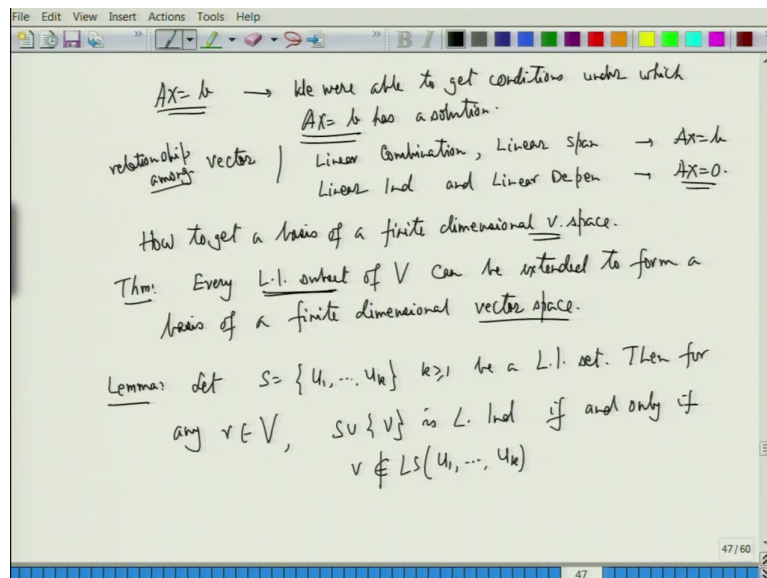 File Edit View Insert Actions Tools Help
Ax=b → We were able to get conditions under which
Ax=b has a solution.
relationship among vector | Linear Combination, Linear Span → Ax=b
Linear Ind and Linear Depen → Ax=0.
How to get a basis of a finite dimensional v. space.
Thm: Every L.I. subset of V can be extended to form a
basis of a finite dimensional vector space.
Lemma: Let S = {u₁, ..., uₖ} k≥1 be a L.I. set. Then for
any v ∈ V, S ∪ {v} is L. Ind if and only if
v ∉ LS(u₁, ..., uₖ)
47/60
47